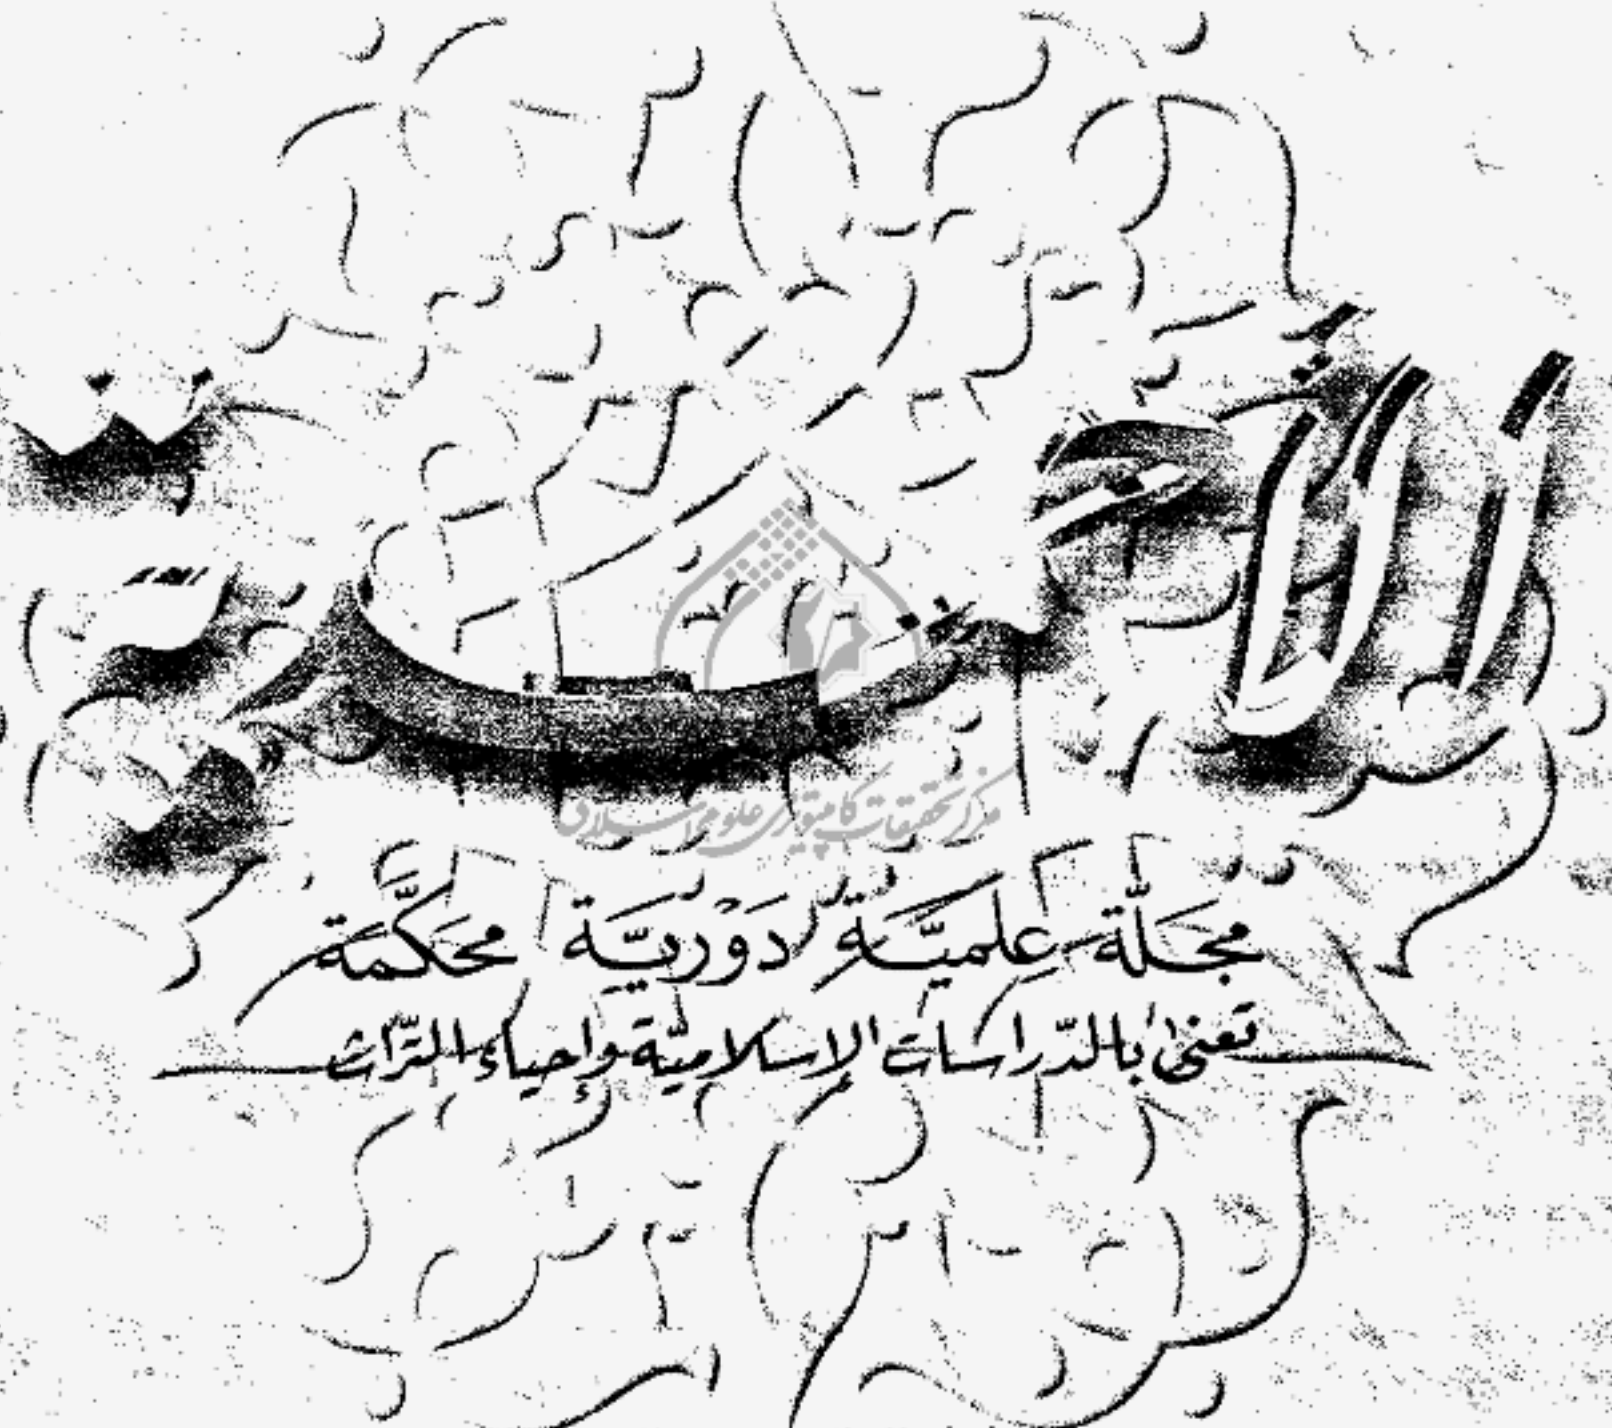 الأحمدية
مرکز تحقیقات کامپیوتری علوم اسلامی
مجَلَّة عِلميَّة دَوْريَّة محَكَّمَة
تعنىٰ بالدّراسات الإسلاميّة وإحياء التّراث